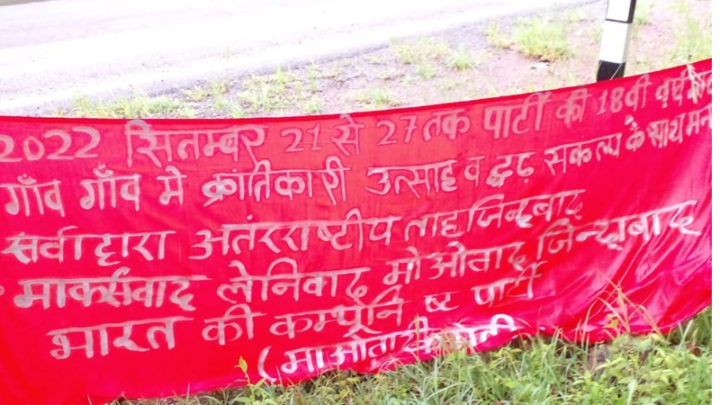 2022 सितम्बर 21 से 27 तक पार्टी की 18वी वर्ष
गाँव गाँव मे क्रांतिकारी उत्साह व द्रढ़ सकल्प के साथ मना
सर्वाहारा अतंरराष्टीय ताहजिन्दबाद
मार्क्सवाद लेनिवाद मोओवाद जिन्दाबाद
भारत की कम्युनिष्ट पार्टी